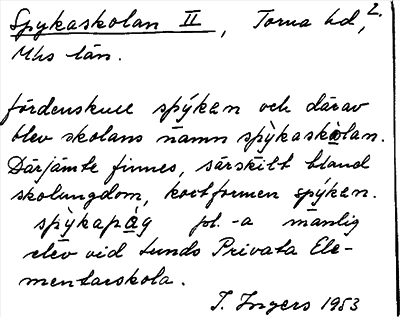 Spykaskolan II, Torna hd, 2.
Mhs län.
fördenskull spýken och därav
blev skolans namn spỳkaskò̲lan.
Därjämte finnes, särskilt bland
skolungdom, kortformen spýken.
spỳkapà̲g pl. -a manlig
elev vid Lunds Privata Ele-
mentarskola.
I. Ingers 1953